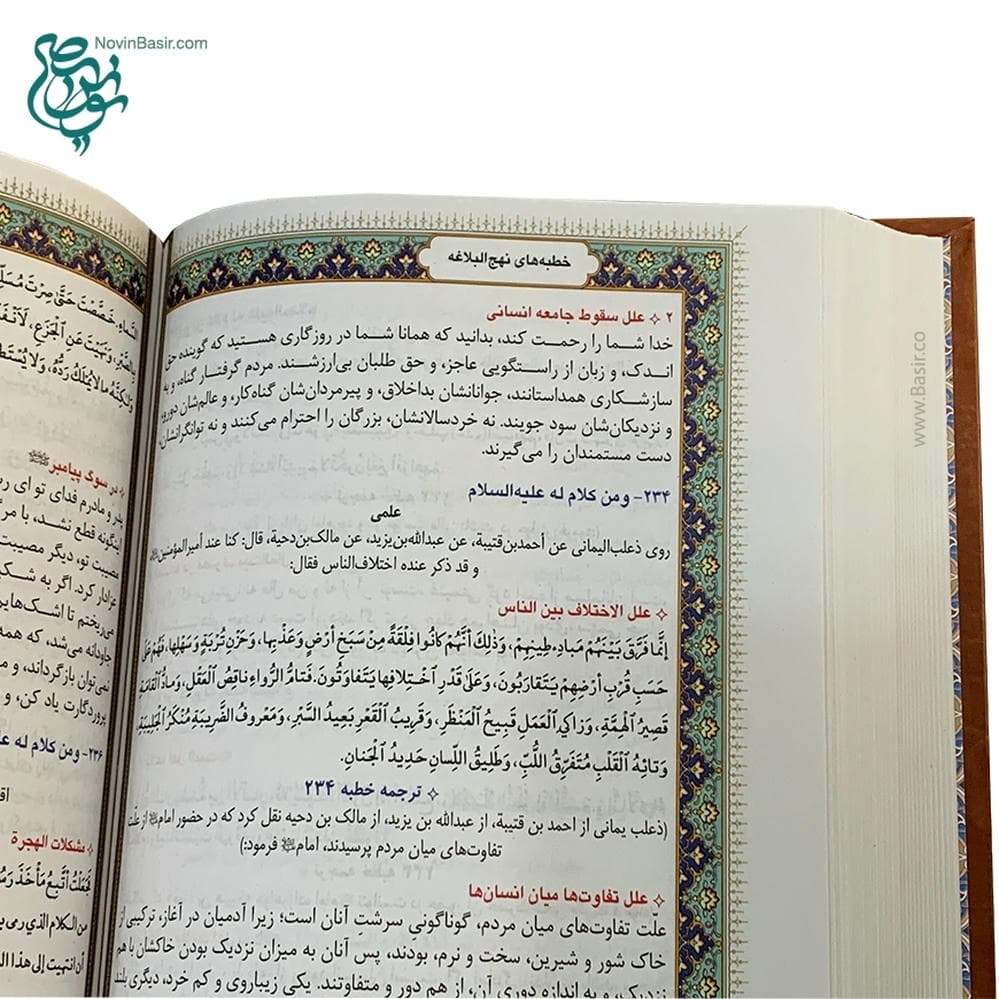 NovinBasir.com
خطبه‌های نهج‌البلاغه
۲ علل سقوط جامعه انسانی
خدا شما را رحمت کند، بدانید که همانا شما در روزگاری هستید که گوینده حق
اندک، و زبان از راستگویی عاجز، و حق طلبان بی‌ارزشند. مردم گرفتار گناه، و به
سازشکاری همداستانند، جوانانشان بداخلاق، و پیرمردانشان گناه‌کار، و عالم‌شان دورو،
و نزدیکان‌شان سود جویند. نه خردسالانشان، بزرگان را احترام می‌کنند و نه توانگرانشان،
دست مستمندان را می‌گیرند.
۲۳۴- ومن کلام له علیه‌السلام
علمی
روی ذعلب‌الیمانی عن أحمدبن‌قتیبة، عن عبدالله‌بن‌یزید، عن مالک‌بن‌دحیة، قال: کنا عند أمیرالمؤمنین
و قد ذکر عنده اختلاف‌الناس فقال:
علل الاختلاف بین الناس
إِنَّمَا فَرَّقَ بَيْنَهُمْ مَبَادِءُ طِينِهِمْ، وَذٰلِكَ أَنَّهُمْ كَانُوا فِلْقَةً مِنْ سَبَخِ أَرْضٍ وَعَذْبِهَا، وَحَزْنِ تُرْبَةٍ وَسَهْلِهَا، فَهُمْ عَلَى
حَسَبِ قُرْبِ أَرْضِهِمْ يَتَقَارَبُونَ، وَعَلَى قَدْرِ اخْتِلَافِهَا يَتَفَاوَتُونَ. فَتَامُّ الرُّوَاءِ نَاقِصُ الْعَقْلِ، وَمَادُّ الْقَامَةِ
قَصِيرُ الْهِمَّةِ، وَزَاكِي الْعَمَلِ قَبِيحُ الْمَنْظَرِ، وَقَرِيبُ الْقَعْرِ بَعِيدُ السَّبْرِ، وَمَعْرُوفُ الضَّرِيبَةِ مُنْكَرُ الْجَلِيبَةِ،
وَتَائِهُ الْقَلْبِ مُتَفَرِّقُ اللُّبِّ، وَطَلِيقُ اللِّسَانِ حَدِيدُ الْجَنَانِ.
ترجمه خطبه ۲۳۴
(ذعلب یمانی از احمد بن قتیبة، از عبدالله بن یزید، از مالک بن دحیه نقل کرد که در حضور امام از علّت
تفاوت‌های میان مردم پرسیدند، امام فرمود:)
علل تفاوت‌ها میان انسان‌ها
علّت تفاوت‌های میان مردم، گوناگونی سرشتِ آنان است؛ زیرا آدمیان در آغاز، ترکیبی از
خاک شور و شیرین، سخت و نرم، بودند، پس آنان به میزان نزدیک بودن خاکشان با هم
نزدیک، و به اندازه دوری آن، از هم دور و متفاوتند. یکی زیباروی و کم خرد، دیگری بلند
السَّمَاءِ. خَصَّصْتَ حَتَّى صِرْتَ
بِالصَّبْرِ، وَنَهَيْتَ عَنِ الْجَزَعِ، لَأَنْفَدْ
وَلٰكِنَّهُ مَا لَا يُمْلَكُ رَدُّهُ، وَلَا يُسْتَطَ
در سوگ پیامبر
پدر و مادرم فدای تو ای ر
اینگونه قطع نشد، با مر
مصیبت تو، دیگر مصیبت
عزادار کرد. اگر به شک
می‌ریختم تا اشک‌هایر
جاودانه می‌شد، که همه
نمی‌توان بازگرداند، و م
پروردگارت یاد کن، و
۲۳۶- ومن کلام له عل
مشکلات الهجرة
فَجَعَلْتُ أَتْبَعُ مَأْخَذَ رَسُ
أن انتهيت إلى هذا ال
www.Basir.co